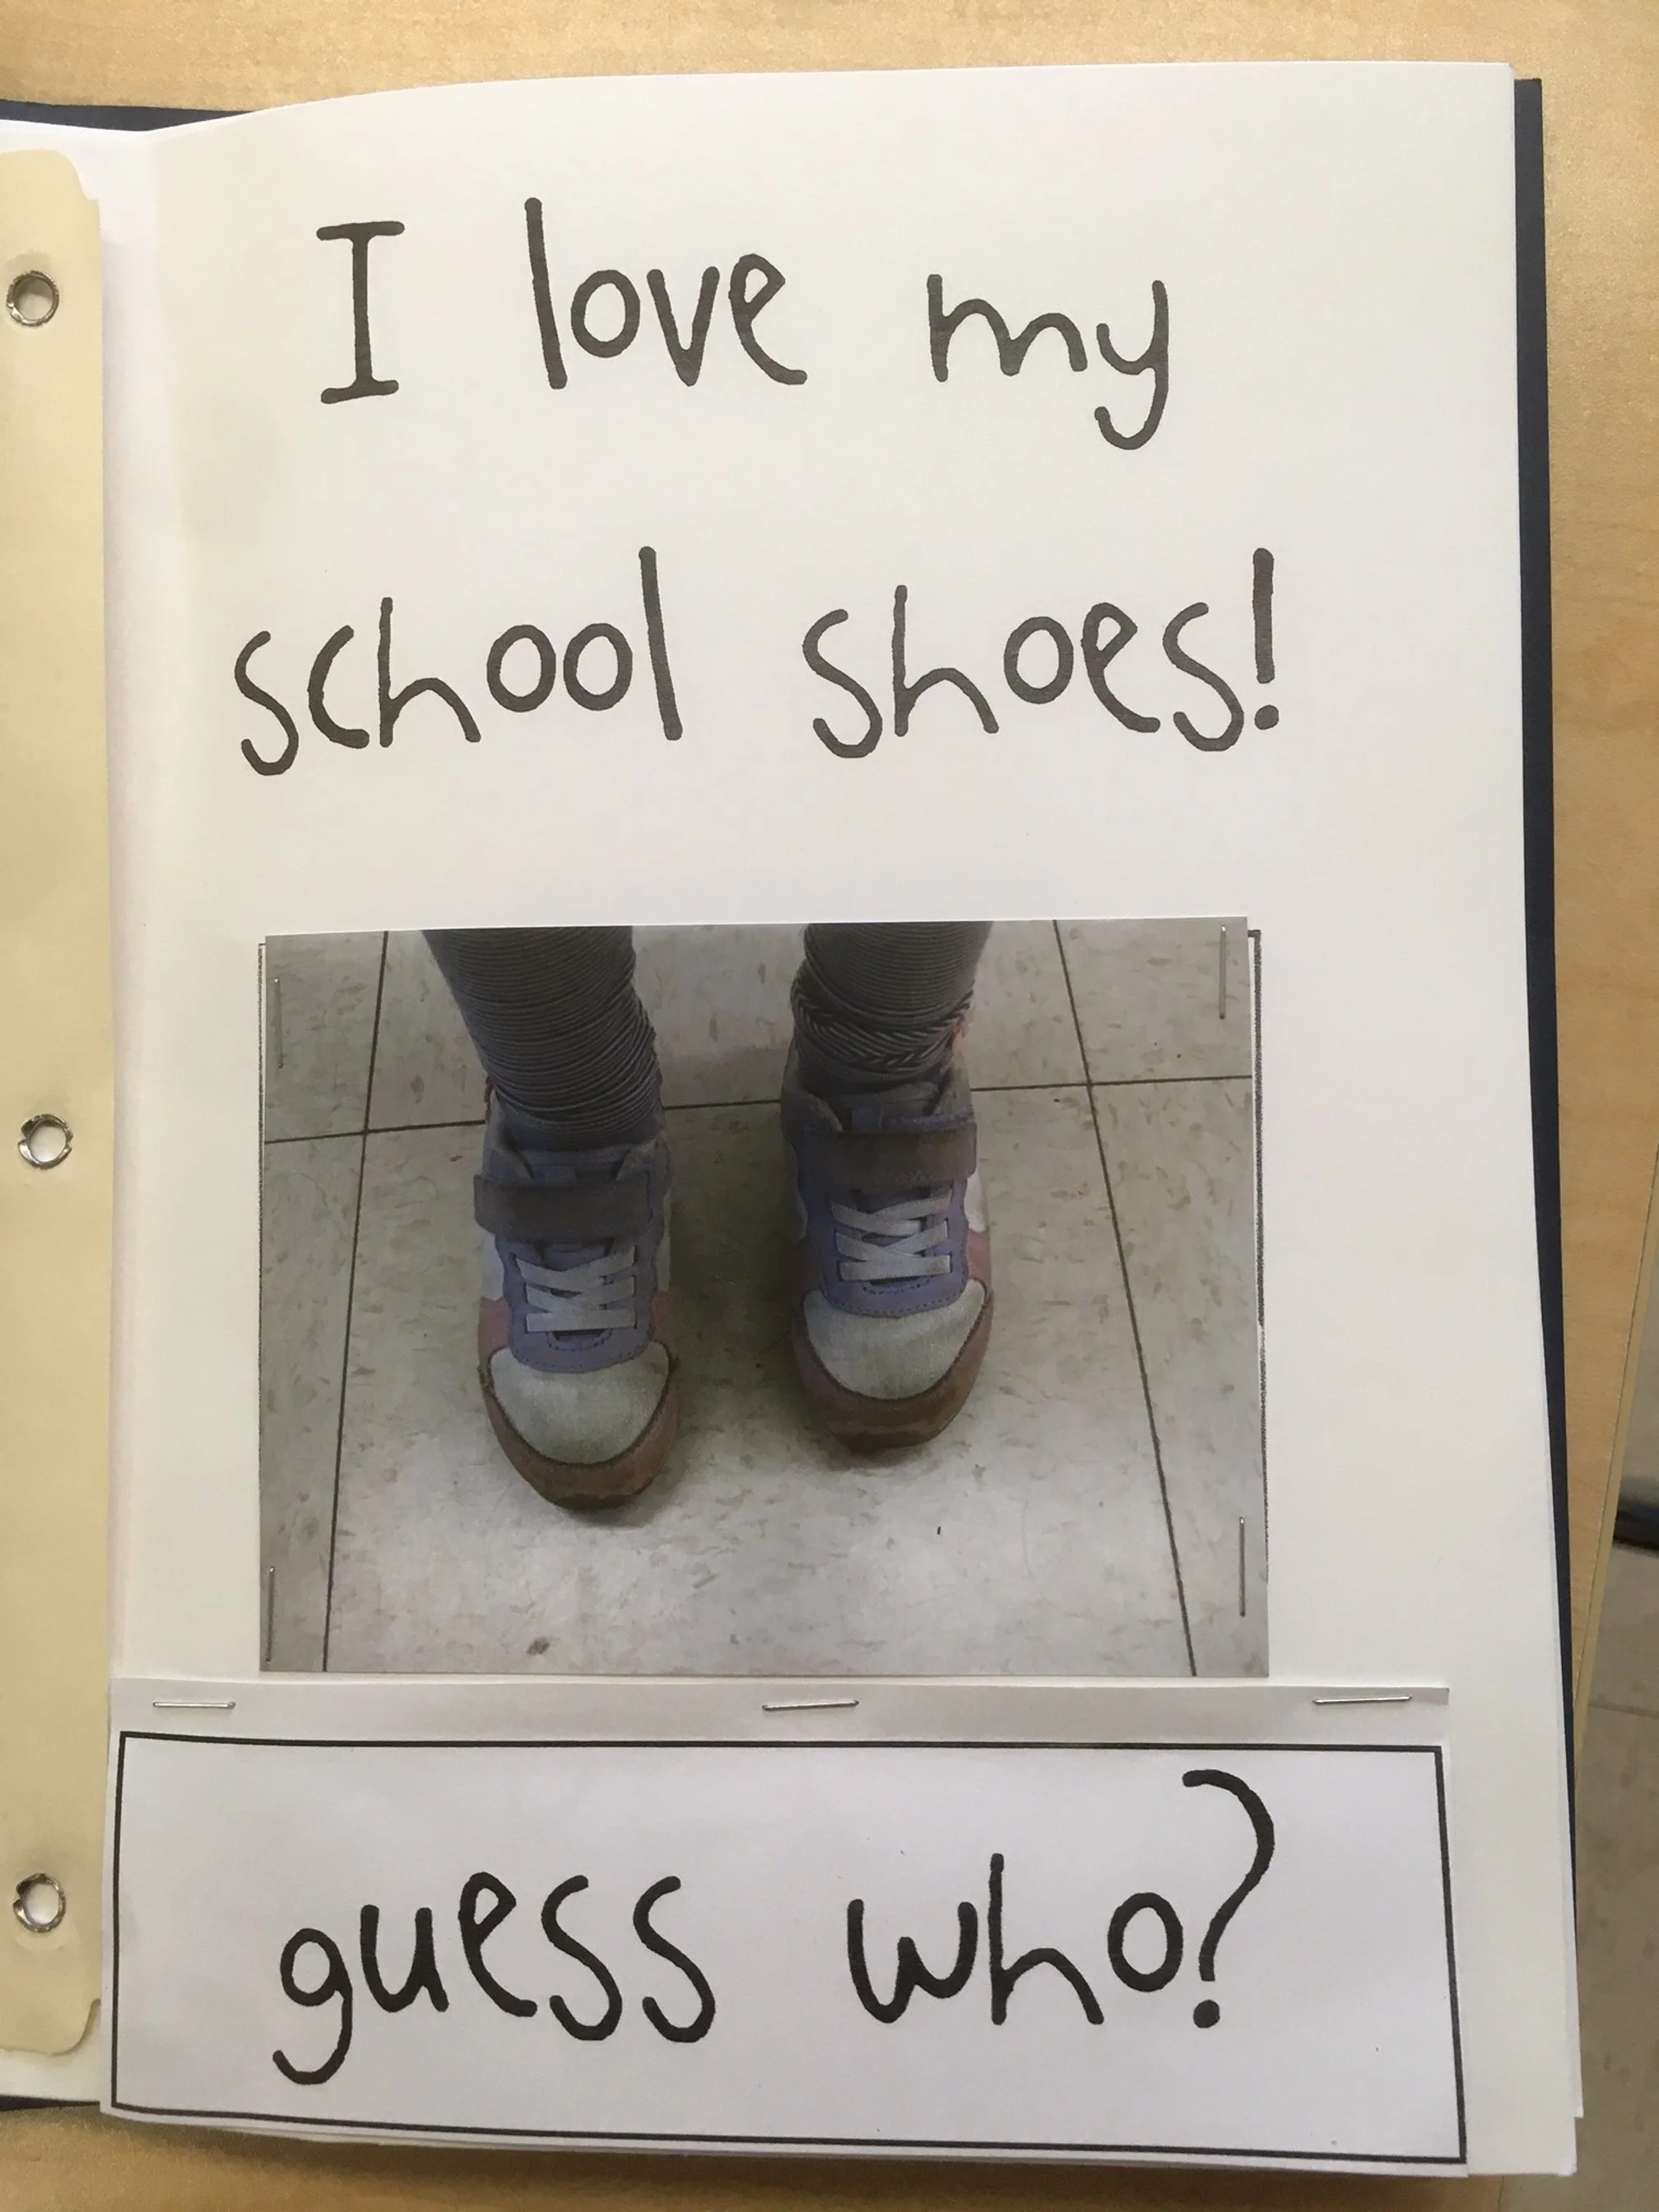 I love my
school shoes!
guess who?